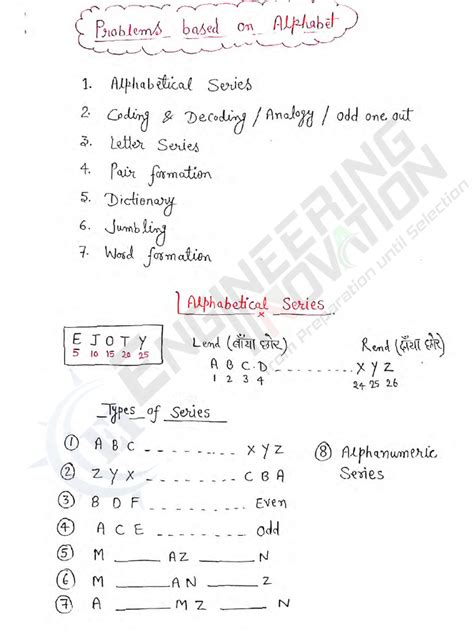 Problems based on Alphabet
1. Alphabetical Series
2. Coding & Decoding / Analogy / odd one out
3. Letter Series
4. Pair formation
5. Dictionary
6. Jumbling
7. Word formation
ENGINEERING INNOVATION
Preparation until Selection
Alphabetical Series
E J O T Y
5 10 15 20 25
Lend (बाँया छोर) Rend (दाँया छोर)
A B C D ---------- X Y Z
1 2 3 4 24 25 26
Types of Series
① A B C ---------- X Y Z
② Z Y X ---------- C B A
③ B D F ---------- Even
④ A C E ---------- odd
⑤ M ______ AZ ______ N
⑥ M ______ AN ______ Z
⑦ A ______ MZ ______ N
⑧ Alphanumeric
Series